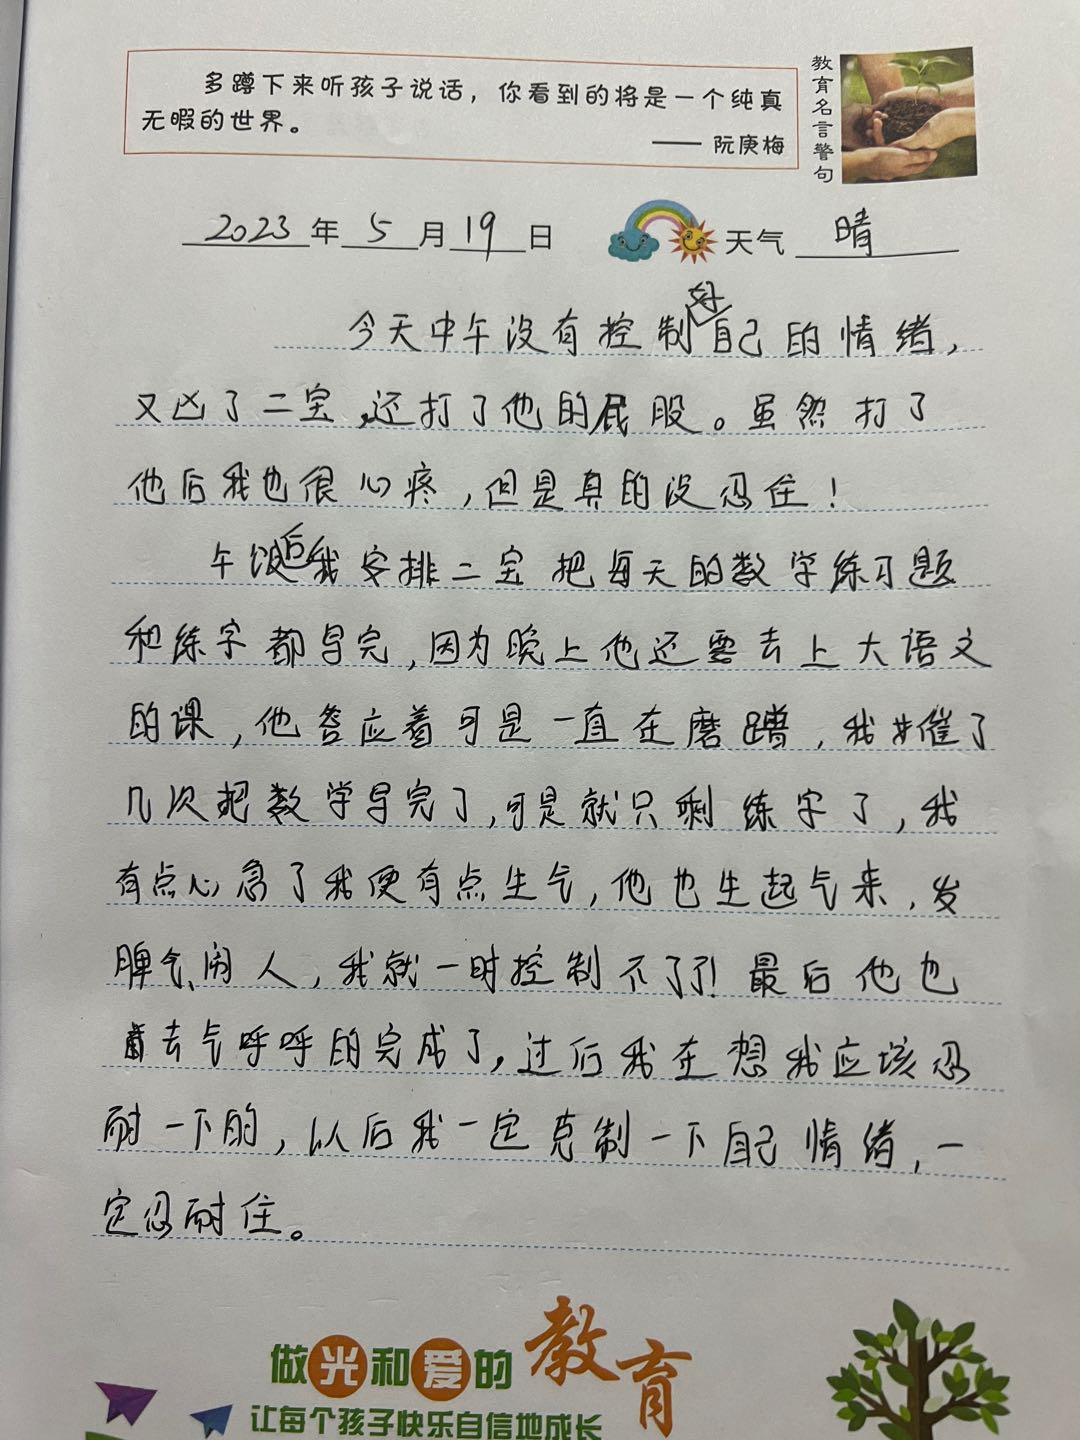 多蹲下来听孩子说话，你看到的将是一个纯真
无暇的世界。
—— 阮庚梅
教育名言警句
2023年5月19日 天气 晴
今天中午没有控制好自己的情绪，
又凶了二宝，还打了他的屁股。虽然打了
他后我也很心疼，但是真的没忍住！
午饭后我安排二宝把每天的数学练习题
和练字都写完，因为晚上他还要去上大语文
的课，他答应着可是一直在磨蹭，我催了
几次把数学写完了，可是就只剩练字了，我
有点心急了我便有点生气，他也生起气来，发
脾气、闹人，我就一时控制不了了！最后他也
去气呼呼的完成了，过后我在想我应该忍
耐一下的，以后我一定克制一下自己情绪，一
定忍耐住。
做光和爱的教育
让每个孩子快乐自信地成长